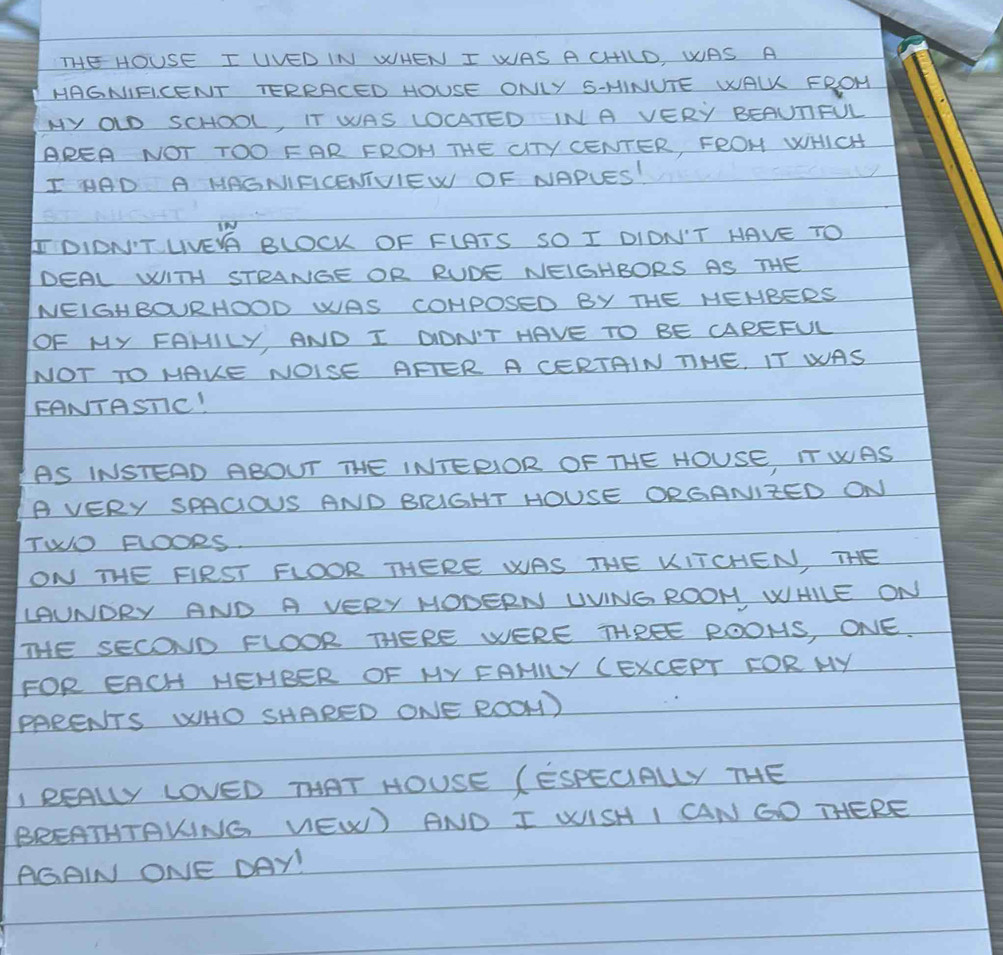 THE HOUSE I LIVED IN WHEN I WAS A CHILD, WAS A
MAGNIFICENT TERRACED HOUSE ONLY 5-MINUTE WALK FROM
MY OLD SCHOOL, IT WAS LOCATED IN A VERY BEAUTIFUL
AREA NOT TOO FAR FROM THE CITY CENTER, FROM WHICH
I HAD A MAGNIFICENT VIEW OF NAPLES!
IN
I DIDN'T LIVE A BLOCK OF FLATS SO I DIDN'T HAVE TO
DEAL WITH STRANGE OR RUDE NEIGHBORS AS THE
NEIGHBOURHOOD WAS COMPOSED BY THE MEMBERS
OF MY FAMILY, AND I DIDN'T HAVE TO BE CAREFUL
NOT TO MAKE NOISE AFTER A CERTAIN TIME. IT WAS
FANTASTIC!
AS INSTEAD ABOUT THE INTERIOR OF THE HOUSE, IT WAS
A VERY SPACIOUS AND BRIGHT HOUSE ORGANIZED ON
TWO FLOORS.
ON THE FIRST FLOOR THERE WAS THE KITCHEN, THE
LAUNDRY AND A VERY MODERN LIVING ROOM, WHILE ON
THE SECOND FLOOR THERE WERE THREE ROOMS, ONE.
FOR EACH MEMBER OF MY FAMILY (EXCEPT FOR MY
PARENTS WHO SHARED ONE ROOM)
I REALLY LOVED THAT HOUSE (ESPECIALLY THE
BREATHTAKING VIEW) AND I WISH I CAN GO THERE
AGAIN ONE DAY!